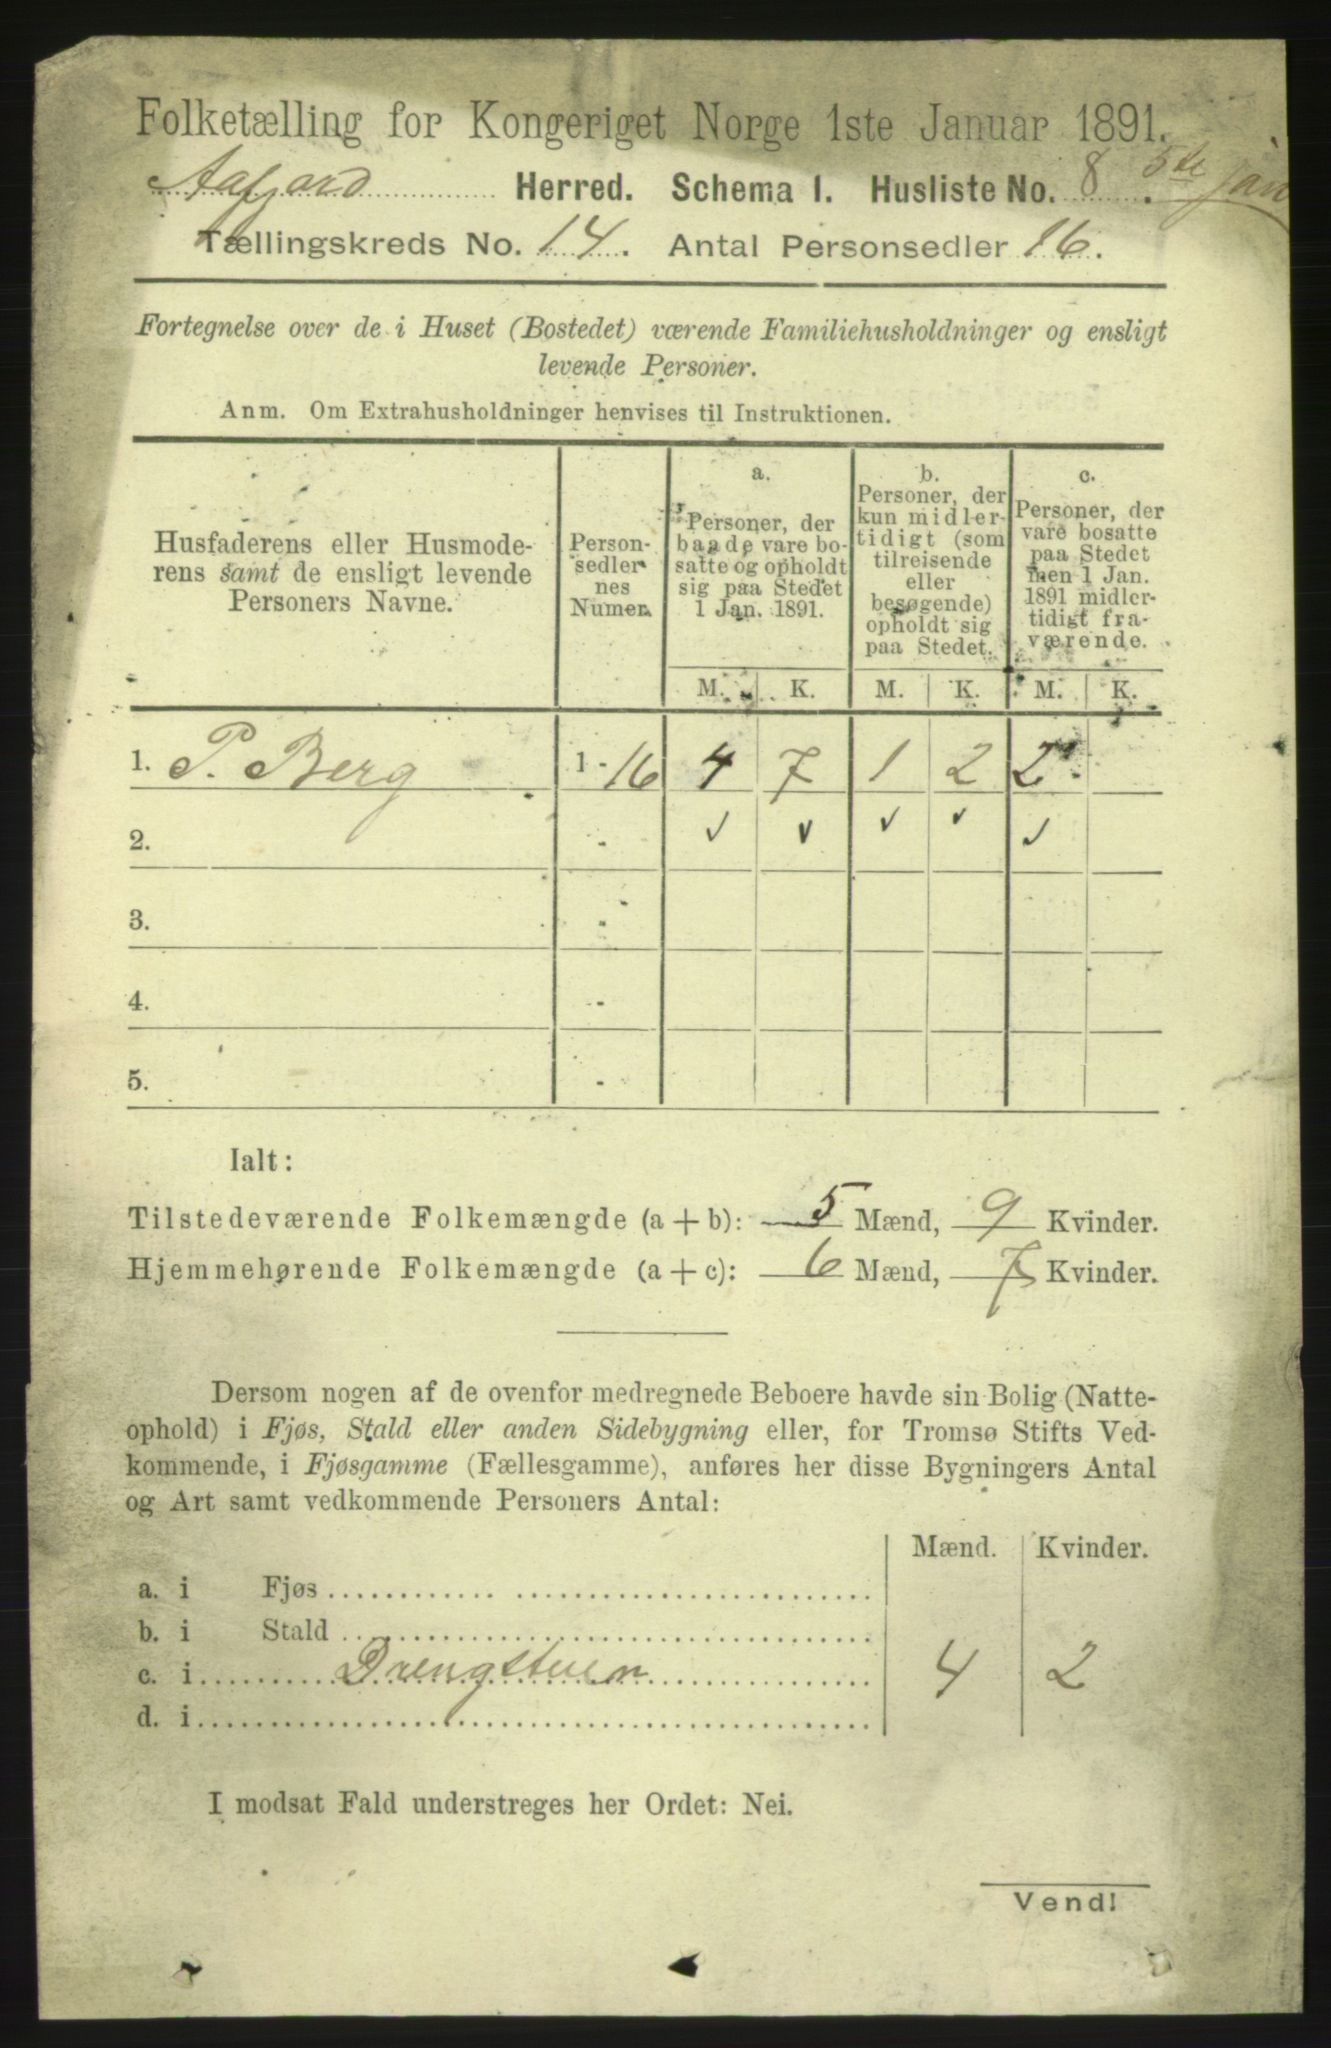 Folketælling for Kongeriget Norge 1ste Januar 1891.
Aafjord Herred. Schema 1. Husliste No. 8. 5te jan
Tællingskreds No. 14. Antal Personsedler 16.
Fortegnelse over de i Huset (Bostedet) værende Familiehusholdninger og ensligt
levende Personer.
Anm. Om Extrahusholdninger henvises til Instruktionen.
Husfaderens eller Husmode-
rens samt de ensligt levende
Personers Navne.
Person-
sedler
nes
Numer.
a.
Personer, der
baade vare bo-
satte og opholdt
sig paa Stedet
1 Jan. 1891.
b.
Personer, der
kun midler-
tidigt (som
tilreisende
eller
besøgende)
opholdt sig
paa Stedet.
c.
Personer, der
vare bosatte
paa Stedet
men 1 Jan.
1891 midler-
tidigt fra-
værende.
M. K. M. K. M. K.
1. P. Berg 1 - 16 4 7 1 2 2
2. - ✓ ✓ ✓ ✓ ✓
3. -
4. -
5. -
Ialt:
Tilstedeværende Folkemængde (a + b): 5 Mænd, 9 Kvinder.
Hjemmehørende Folkemængde (a + c): 6 Mænd, 7 Kvinder.
Dersom nogen af de ovenfor medregnede Beboere havde sin Bolig (Natte-
ophold) i Fjøs, Stald eller anden Sidebygning eller, for Tromsø Stifts Ved-
kommende, i Fjøsgamme (Fællesgamme), anføres her disse Bygningers Antal
og Art samt vedkommende Personers Antal:
Mænd. Kvinder.
a. i Fjøs
b. i Stald
c. i Drengstuen 4 2
d. i
I modsat Fald understreges her Ordet: Nei.
Vend!